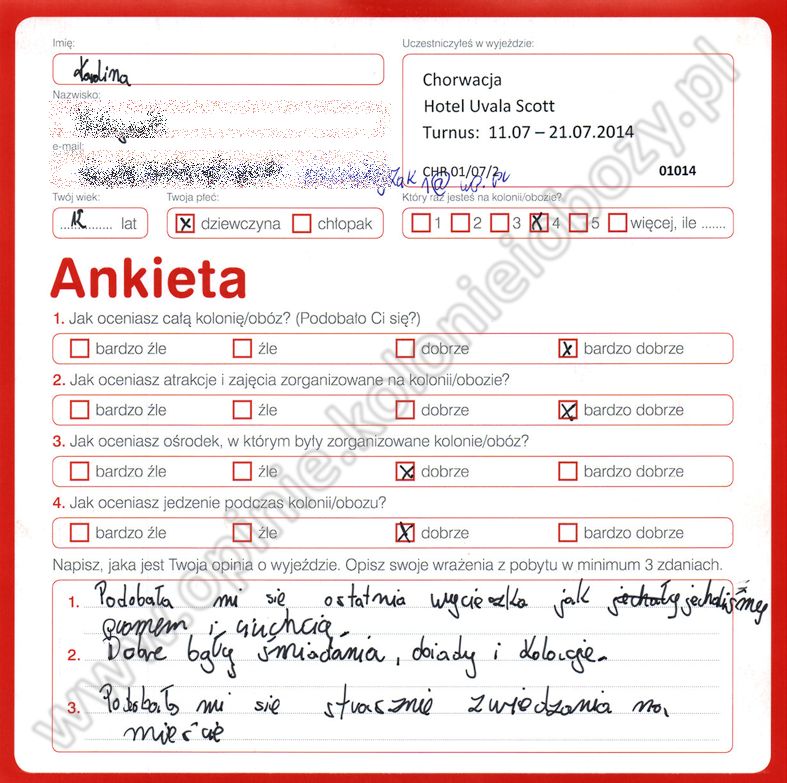 Imię:
Karolina
Nazwisko:
e-mail:
Uczestniczyłeś w wyjeździe:
Chorwacja
Hotel Uvala Scott
Turnus: 11.07 – 21.07.2014
CHR 01/07/2 01014
1@ wp.pl
Twój wiek:
...12....... lat
Twoja płeć:
X dziewczyna chłopak
Który raz jesteś na kolonii/obozie?
1 2 3 X 4 5 więcej, ile .......
Ankieta
1. Jak oceniasz całą kolonię/obóz? (Podobało Ci się?)
bardzo źle źle dobrze X bardzo dobrze
2. Jak oceniasz atrakcje i zajęcia zorganizowane na kolonii/obozie?
bardzo źle źle dobrze X bardzo dobrze
3. Jak oceniasz ośrodek, w którym były zorganizowane kolonie/obóz?
bardzo źle źle X dobrze bardzo dobrze
4. Jak oceniasz jedzenie podczas kolonii/obozu?
bardzo źle źle X dobrze bardzo dobrze
Napisz, jaka jest Twoja opinia o wyjeździe. Opisz swoje wrażenia z pobytu w minimum 3 zdaniach.
1. Podobała mi się ostatnia wycieczka jak jechaliśmy
promem i ciuchcią.
2. Dobre były śniadania, obiady i kolacje.
3. Podobało mi się strasznie zwiedzania na
mieście
www.opinie.kolonieiobozy.pl